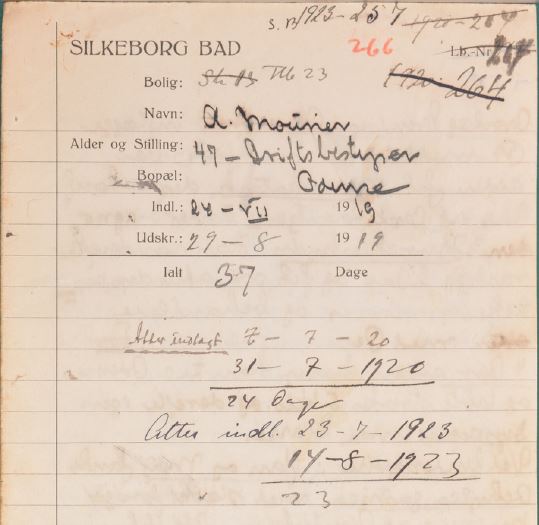 S. B. 1923-257 1920-264
SILKEBORG BAD 266 Lb.-Nr. 264
Bolig: Stk 13 Tlb 23 1920-264
Navn: A. Mourier
Alder og Stilling: 47 - Driftsbestyrer
Bopæl: Odense
Indl.: 24-VII 1919
Udskr.: 29-8 1919
Ialt 37 Dage
Atter indlagt 7-7-20
31-7-1920
24 Dage
Atter indl. 23-7-1923
14-8-1923
23